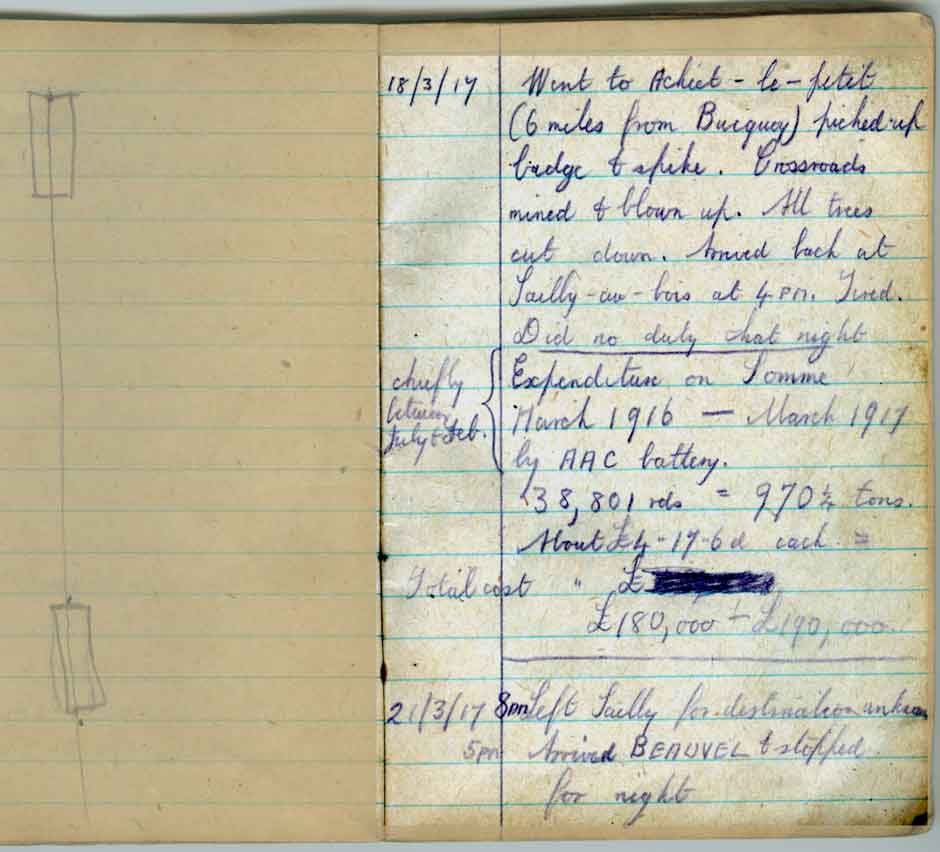 18/3/17 Went to Achiet-le-petit
(6 miles from Bucquoy) picked up
badge & spike. Crossroads
mined & blown up. All trees
cut down. Arrived back at
Sailly-au-bois at 4 PM. Tired.
Did no duty that night
chiefly
between
July & Feb.
Expenditure on Somme
March 1916 — March 1917
by AAC battery.
38,801 rds = 970 ¼ tons.
About £4-17-6d each =
Total cost " £
£180,000 - £190,000.
21/3/17 8pm Left Sailly for destination unknown
5pm Arrived BEAUVEL & stopped
for night